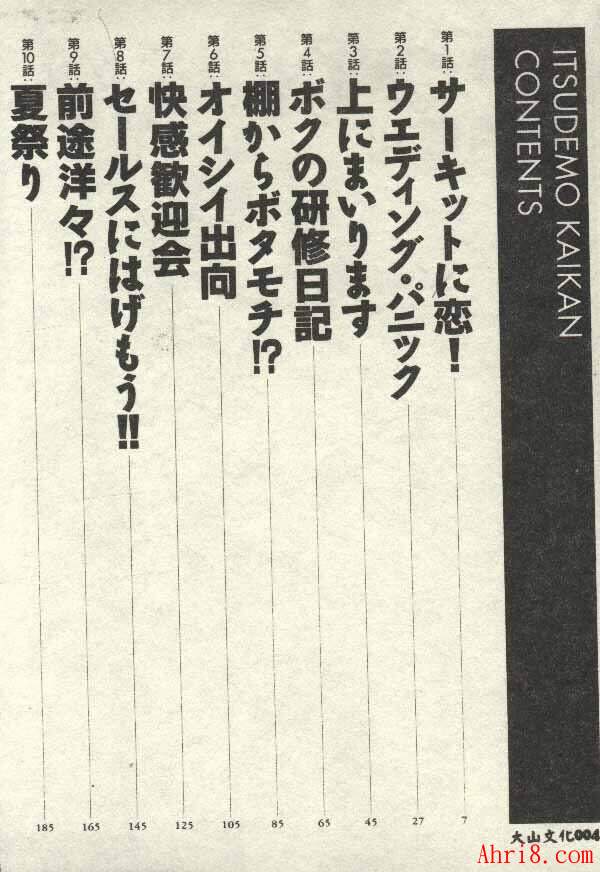 ITSUDEMO KAIKAN
CONTENTS
第1話:サーキットに恋! 7
第2話:ウエディング・パニック 27
第3話:上にまいります 45
第4話:ボクの研修日記 65
第5話:棚からボタモチ!? 85
第6話:オイシイ出向 105
第7話:快感歓迎会 125
第8話:セールスにはげもう!! 145
第9話:前途洋々!? 165
第10話:夏祭り 185
大山文化004
Ahri8.com